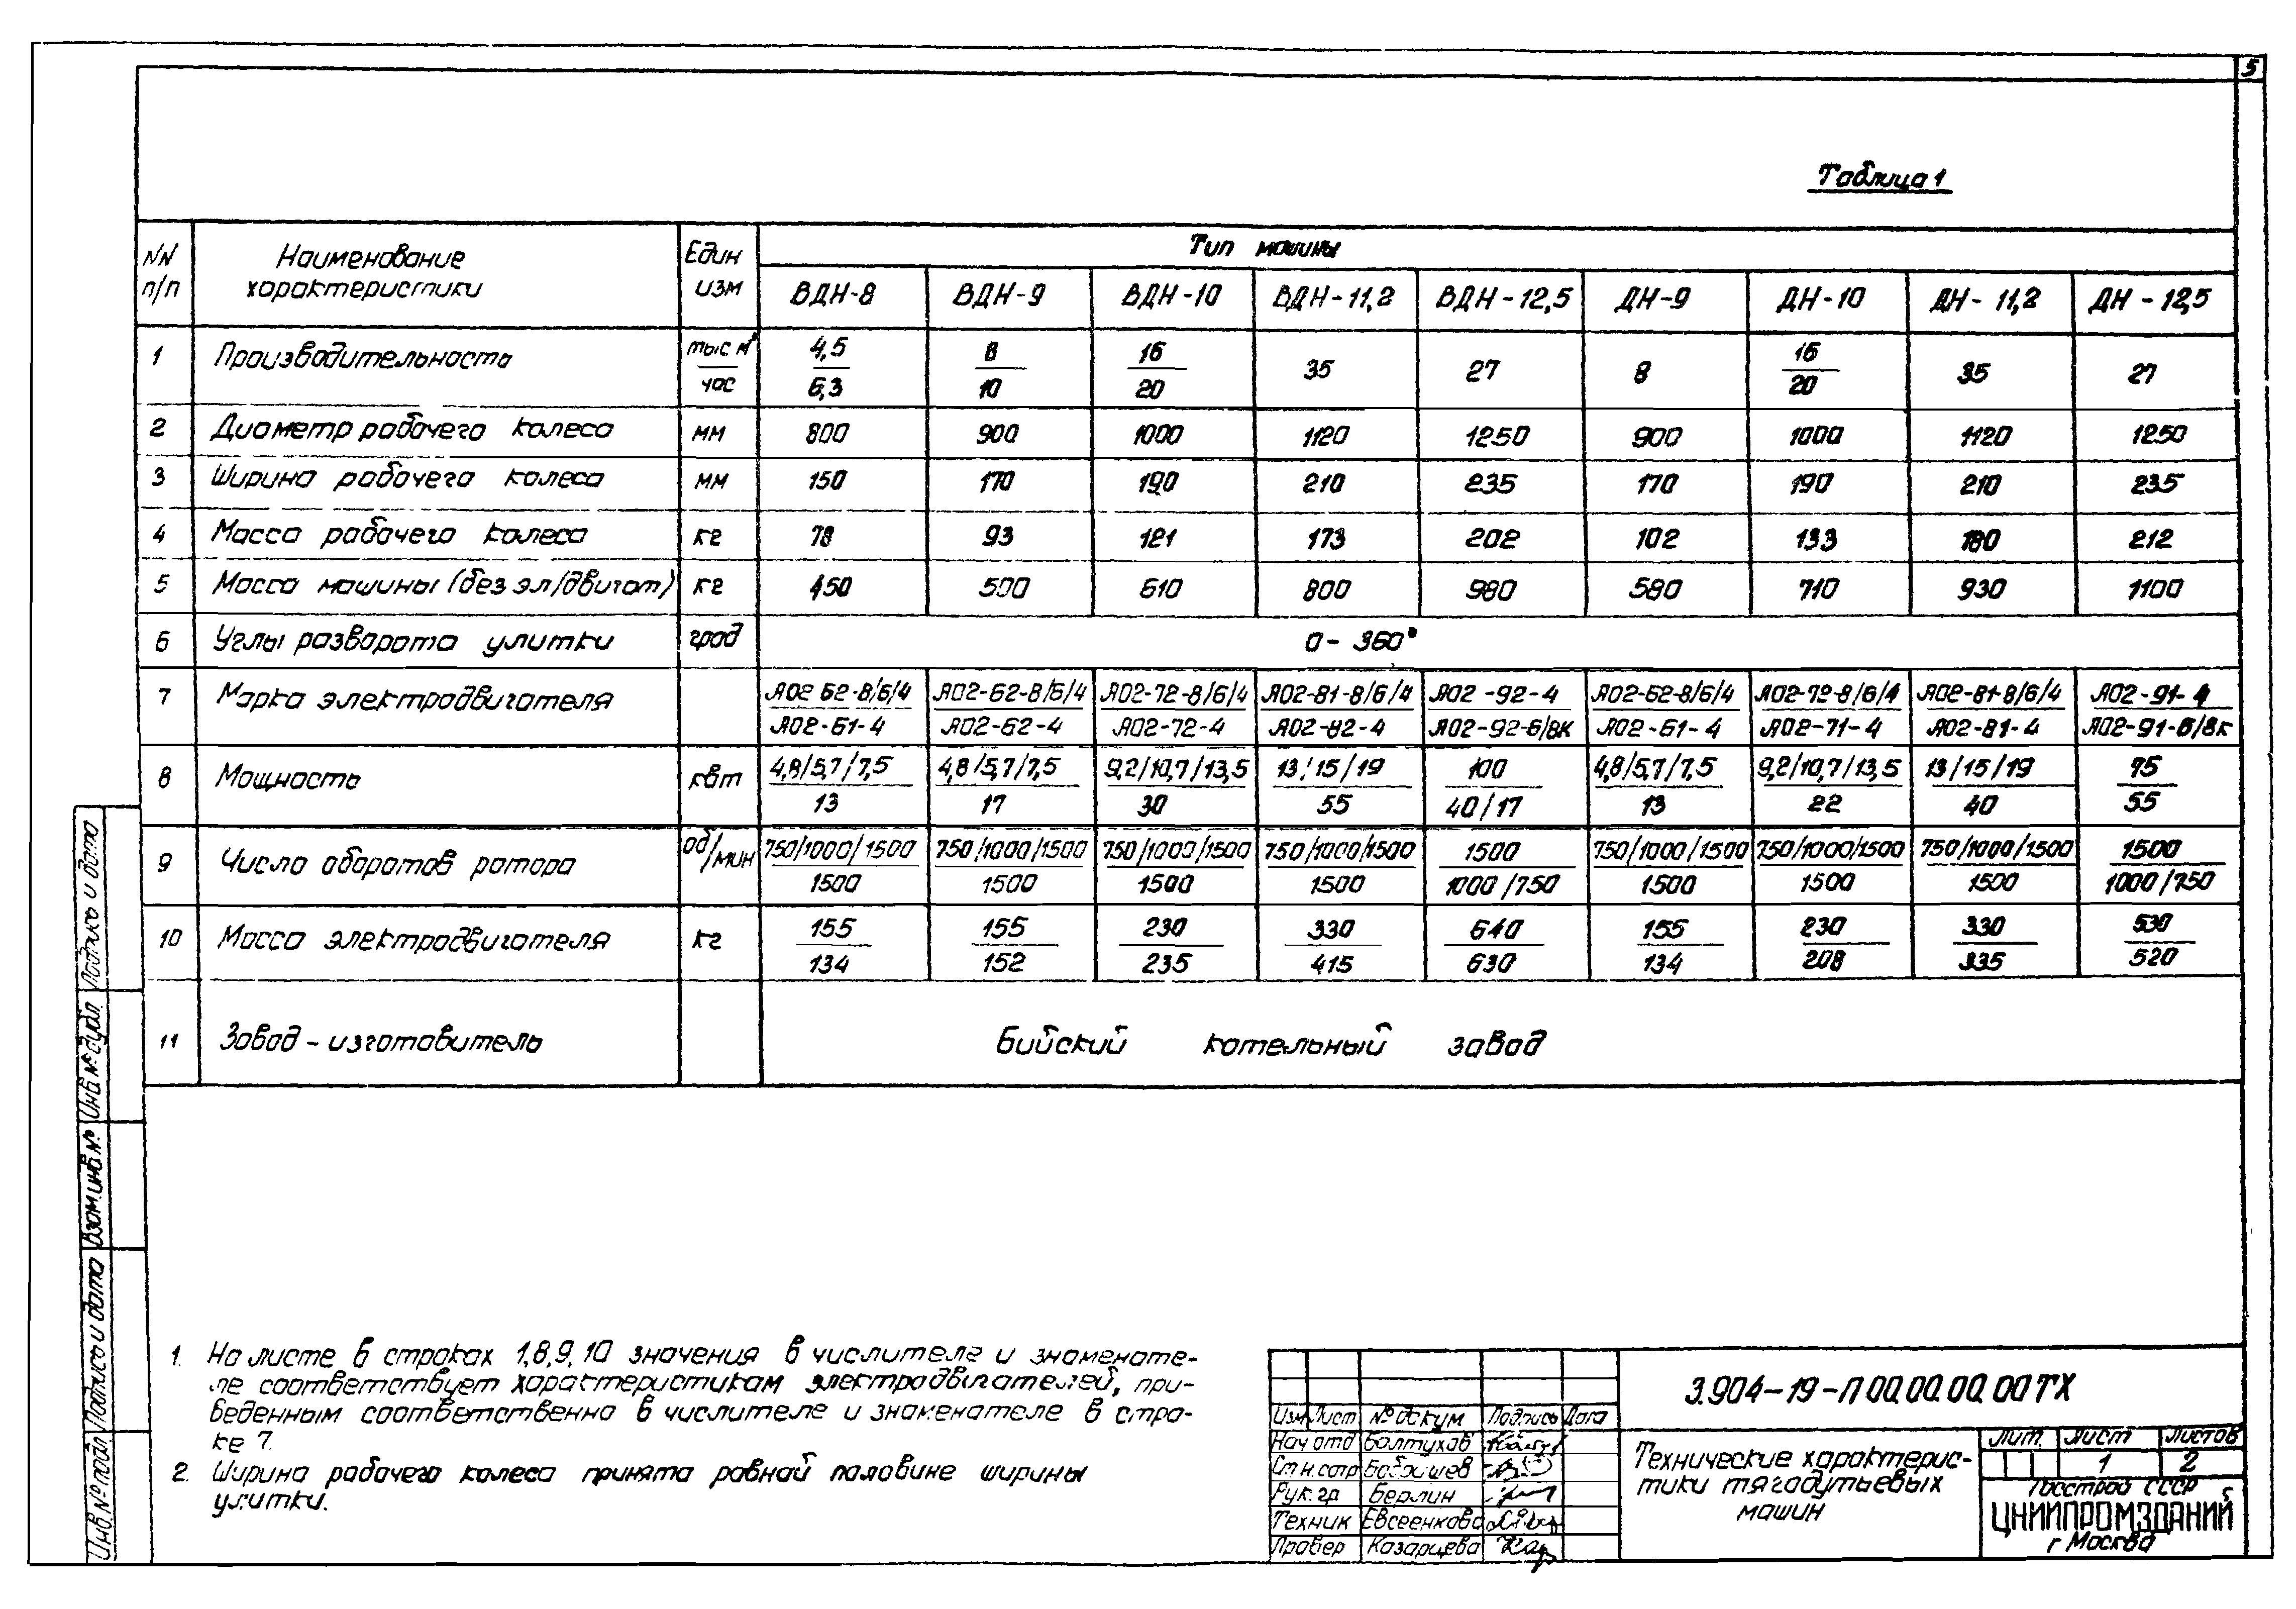 5
Таблица 1
NN п/п | Наименование характеристики | Един изм | Тип машины
ВДН-8 | ВДН-9 | ВДН-10 | ВДН-11,2 | ВДН-12,5 | ДН-9 | ДН-10 | ДН-11,2 | ДН-12,5
1 | Производительность | тыс м³/час | 4,5/6,3 | 8/10 | 16/20 | 35 | 27 | 8 | 16/20 | 35 | 27
2 | Диаметр рабочего колеса | мм | 800 | 900 | 1000 | 1120 | 1250 | 900 | 1000 | 1120 | 1250
3 | Ширина рабочего колеса | мм | 150 | 170 | 190 | 210 | 235 | 170 | 190 | 210 | 235
4 | Масса рабочего колеса | кг | 78 | 93 | 121 | 173 | 202 | 102 | 133 | 180 | 212
5 | Масса машины (без эл/двигат) | кг | 450 | 500 | 610 | 800 | 980 | 580 | 710 | 930 | 1100
6 | Углы разворота улитки | град | 0-360°
7 | Марка электродвигателя | АО2 62-8/6/4 | АО2-62-8/6/4 | АО2-72-8/6/4 | АО2-81-8/6/4 | АО2-92-4 | АО2-62-8/6/4 | АО2-72-8/6/4 | АО2-81-8/6/4 | АО2-91-4
АО2-61-4 | АО2-62-4 | АО2-72-4 | АО2-82-4 | АО2-92-6/8К | АО2-61-4 | АО2-71-4 | АО2-81-4 | АО2-91-6/8К
8 | Мощность | квт | 4,8/5,7/7,5 | 4,8/5,7/7,5 | 9,2/10,7/13,5 | 13/15/19 | 100 | 4,8/5,7/7,5 | 9,2/10,7/13,5 | 13/15/19 | 75
13 | 17 | 30 | 55 | 40/17 | 13 | 22 | 40 | 55
9 | Число оборотов ротора | об/мин | 750/1000/1500 | 750/1000/1500 | 750/1000/1500 | 750/1000/1500 | 1500 | 750/1000/1500 | 750/1000/1500 | 750/1000/1500 | 1500
1500 | 1500 | 1500 | 1500 | 1000/750 | 1500 | 1500 | 1500 | 1000/750
10 | Масса электродвигателя | кг | 155 | 155 | 230 | 330 | 640 | 155 | 230 | 330 | 530
134 | 152 | 235 | 415 | 630 | 134 | 208 | 335 | 520
11 | Завод-изготовитель | Бийский котельный завод
1. На листе в строках 1,8,9,10 значения в числителе и знаменате-
ле соответствует характеристикам электродвигателей, при-
веденным соответственно в числителе и знаменателе в стро-
ке 7.
2. Ширина рабочего колеса принята равной половине ширины
улитки.
Инв.№подл
Подпись и дата
Взам.инв№
Инв№дубл.
Подпись и дата
3.904-19-П 00.00.00.00ТХ
Изм Лист №докум Подпись Дата
Нач отд Болтухов
Ст н. сотр Бобришев
Рук. гр Берлин
Техник Евсеенкова
Провер Казарцева
Технические характерис-
тики тягодутьевых
машин
Лит. Лист Листов
1 2
Госстрой СССР
ЦНИИПРОМЗДАНИЙ
г Москва